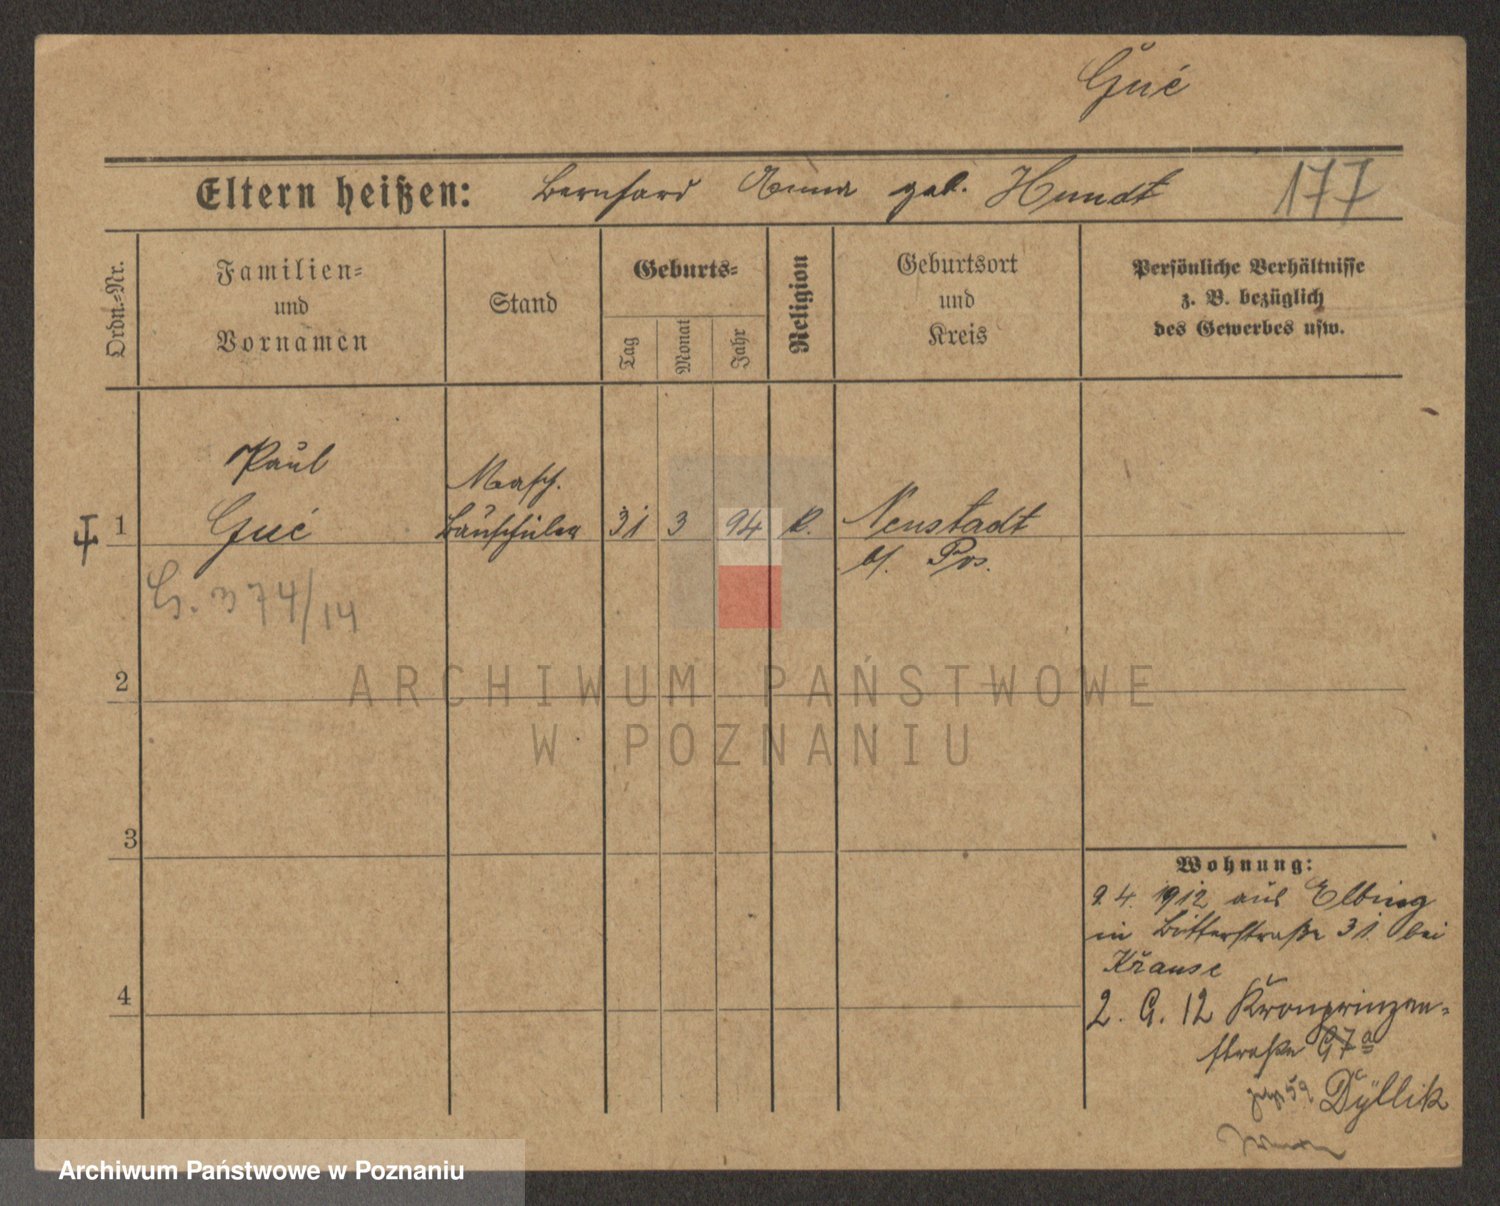 Gué
Eltern heißen: Bernhard Anna geb. Hundt 177
Ordn.=Nr.
Familien=
und
Vornamen
Stand
Geburts=
Tag
Monat
Jahr
Religion
Geburtsort
und
Kreis
Persönliche Verhältnisse
z. B. bezüglich
des Gewerbes usw.
Paul
Masch.
1 Gué Bauschüler 31 3 94 k. Neustadt
b/. Pos.
G. 374/14
2
3
4
Wohnung:
9.4. 1912 aus Elbing
in Bitterstraße 31. bei
Krause
2. G. 12 Kronprinzen-
straße 97a
Dyllik
ARCHIWUM PAŃSTWOWE
W POZNANIU
Archiwum Państwowe w Poznaniu